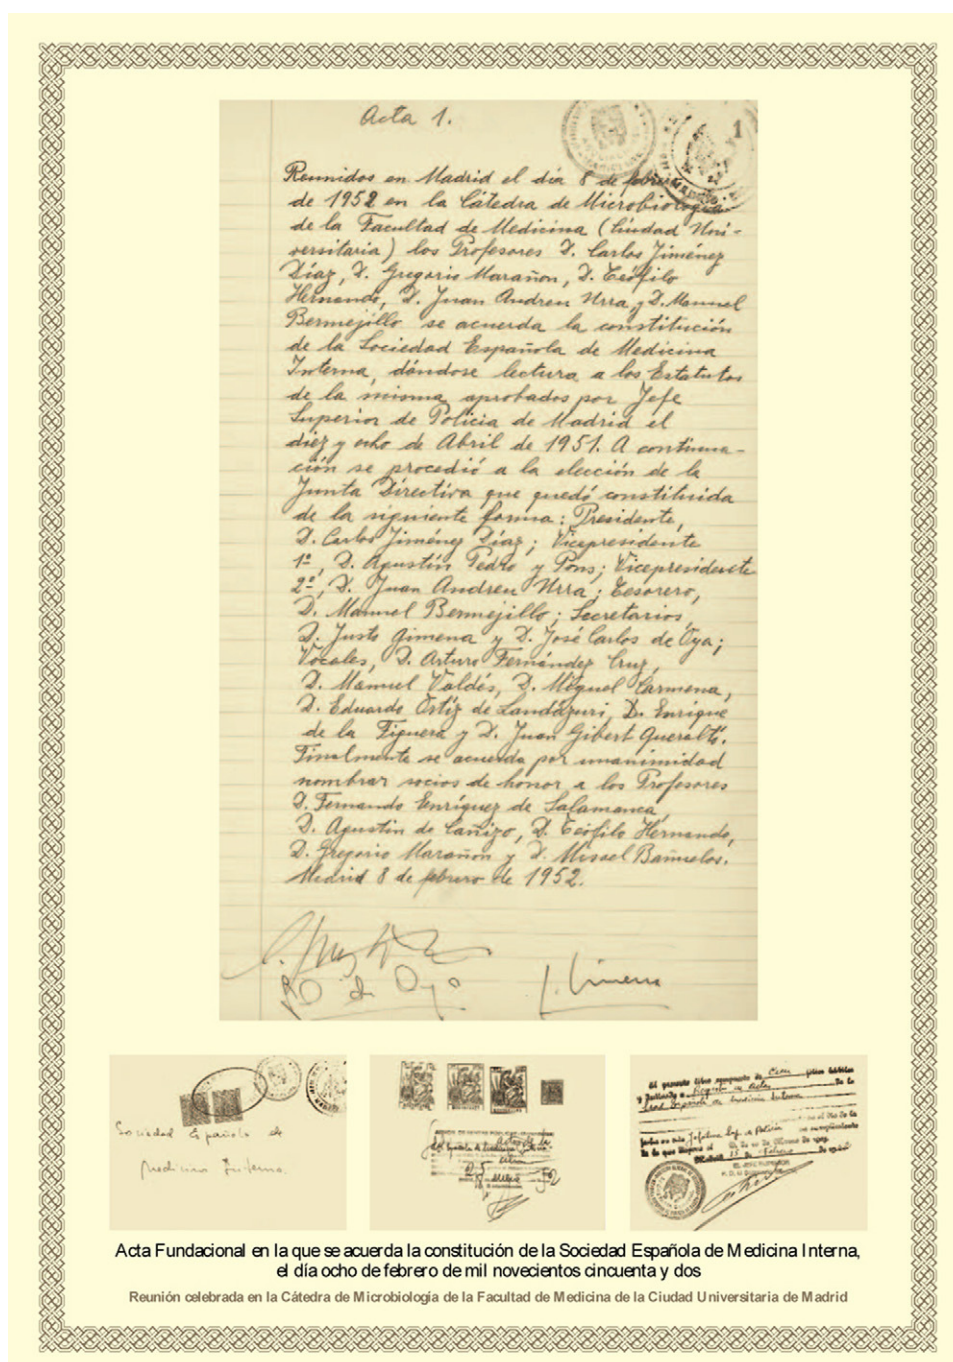 Acta 1.
1
Reunidos en Madrid el día 8 de febrero
de 1952 en la Cátedra de Microbiología
de la Facultad de Medicina (Ciudad Uni-
versitaria) los Profesores D. Carlos Jiménez
Díaz, D. Gregorio Marañon, D. Teófilo
Hernando, D. Juan Andreu Urra, y D. Manuel
Bermejillo se acuerda la constitución
de la Sociedad Española de Medicina
Interna, dándose lectura a los Estatutos
de la misma aprobados por Jefe
Superior de Policia de Madrid el
diez y ocho de Abril de 1951. A continua-
ción se procedió a la elección de la
Junta Directiva que quedó constituida
de la siguiente forma: Presidente,
D. Carlos Jiménez Díaz; Vicepresidente
1º, D. Agustín Pedro y Pons; Vicepresidente
2º, D. Juan Andreu Urra; Tesorero,
D. Manuel Bermejillo; Secretarios,
D. Justo Gimena y D. José Carlos de Oya;
Vocales, D. Arturo Fernández Cruz,
D. Manuel Valdés, D. Miguel Carmena,
D. Eduardo Ortíz de Landázuri, D. Enrique
de la Figuera y D. Juan Gibert Queraltó.
Finalmente se acuerda por unanimidad
nombrar socios de honor a los Profesores
D. Fernando Enríquez de Salamanca,
D. Agustin de Cañizo, D. Teófilo Hernando,
D. Gregorio Marañón y D. Misael Bañuelos.
Madrid 8 de febrero de 1952.
de Oya
J. Gimena
Sociedad Española de
Medicina Interna.
El presente libro compuesto de Cien
de la
de Medicina Interna
Acta Fundacional en la que se acuerda la constitución de la Sociedad Española de Medicina Interna,
el día ocho de febrero de mil novecientos cincuenta y dos
Reunión celebrada en la Cátedra de Microbiología de la Facultad de Medicina de la Ciudad Universitaria de Madrid